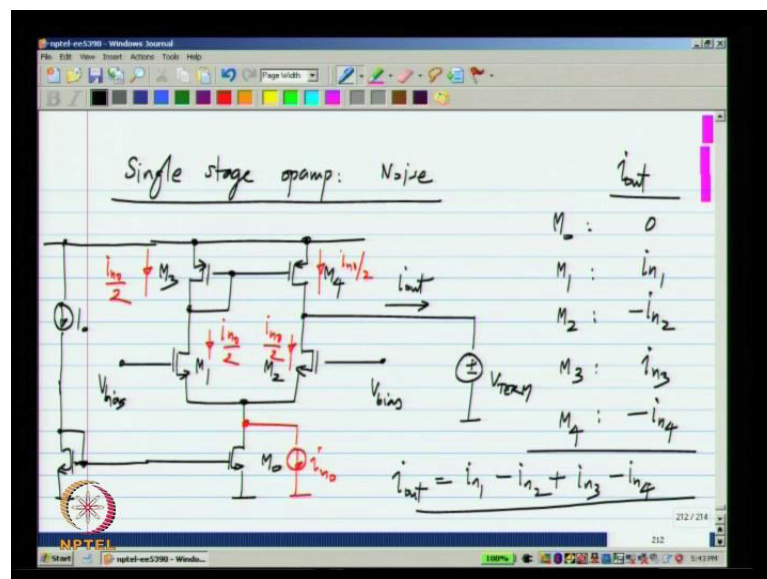 nptel-ee5390 - Windows Journal
File Edit View Insert Actions Tools Help
Page Width
B I
Single stage opamp: Noise
i_out
M_0 : 0
M_1 : i_n1
M_2 : -i_n2
M_3 : i_n3
M_4 : -i_n4
i_out = i_n1 - i_n2 + i_n3 - i_n4
i_n0/2
M_3
M_4
i_n0/2
i_out
I_0
i_n0/2
i_n0/2
M_1
M_2
V_bias
V_bias
V_TERM
M_0
i_n0
NPTEL
212 / 214
212
Start
nptel-ee5390 - Windo...
100%
5:43 PM